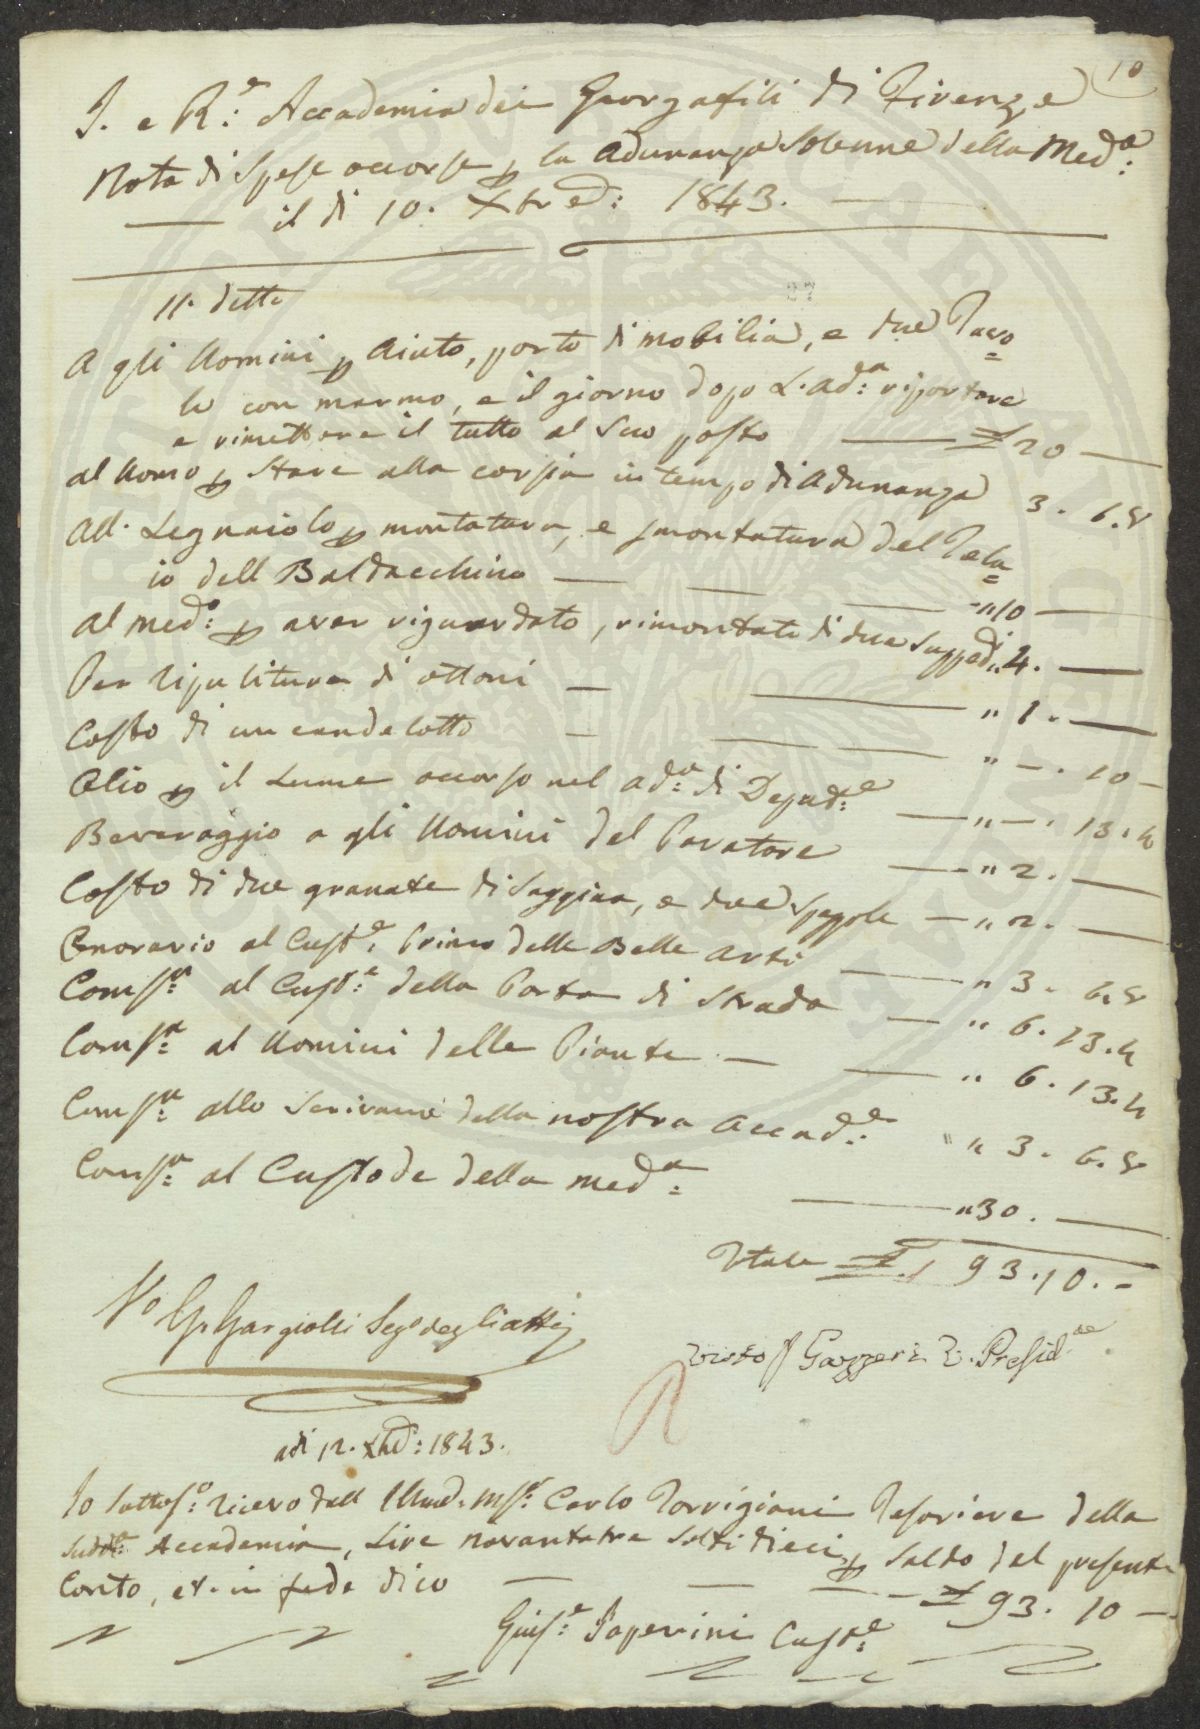 10
I. e R.e Accademia dei Georgofili di Firenze
Nota di Spese occorse p la Adunanza Solenne della Med.a
il di 10. Xbre: 1843.
27
11. detto
A gli Uomini p Aiuto, porto di mobilia, e due Tavo=
le con marmo, e il giorno dopo L'ad.a riportare
e rimettere il tutto al Suo posto £ 20
al Uomo p Stare alla corsia in tempo di Adunanza 3. 6. 8
All. Legnaiolo p montatura, e smontatura del Tela=
io dell Baldacchino " 10
al med.o p aver riguardato, rimontati di due Suppedi " 4.
Per ripulitura di ottoni " 1.
Costo di un candelotto " -. 10 -
Olio p il Lume occorso nel ad.a di Deput.e " -. 13. 4
Beveraggio a gli Uomini del Paratore " 2.
Costo di due granate di Saggina, e due Spazzole " 2.
Onorario al Cust.e Primo delle Belle Arti " 3. 6. 8
Comp.a al Cust.e della Porta di Strada " 6. 13. 4
Comp.a al Uomini delle Piante " 6. 13. 4
Comp.a allo Scrivano della nostra Accad.e " 3. 6. 8
Comp.a al Custode della med.a " 30.
Totale £ 93. 10. -
Vo G. Gargiolli Sego degli atti
Visto Gazzeri V. Presid.te
R
adi 12. Xbre: 1843.
Io Sottos.o ricevo dall Illmo. Mse. Carlo Torrigiani Tesoriere della
Sudd.a Accademia, Lire novantatre Soldi dieci p Saldo del presente
Conto, et. in fede dico £ 93. 10 -
Gius.e Paperini Cust.e